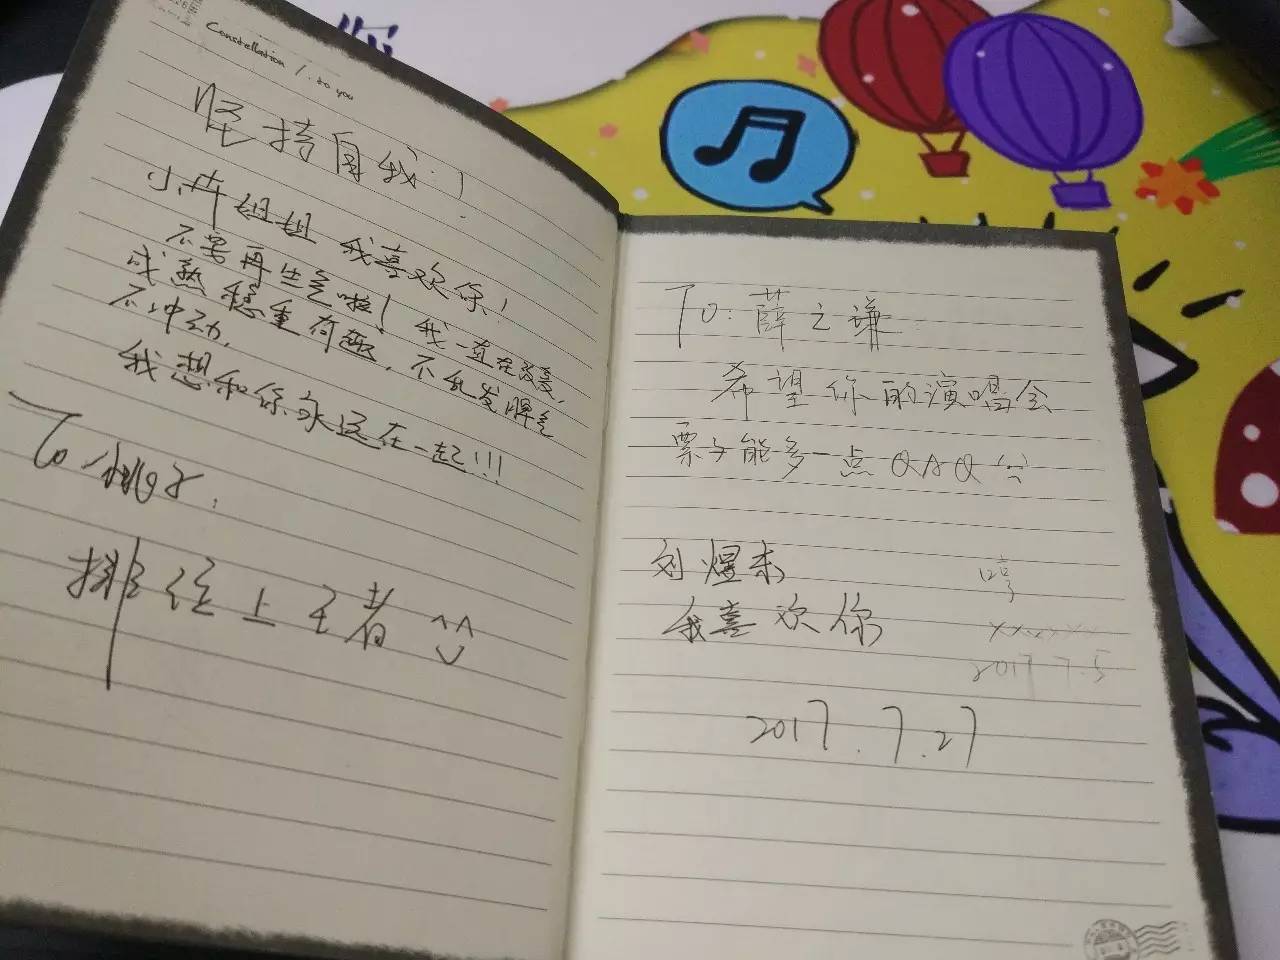 Constellation / to you
坚持自我!
小卉姐姐 我喜欢你!
不要再生气啦! 我一直在改变,
成熟稳重有趣,不乱发脾气
不冲动,
我想和你永远在一起!!!
To 桃子:
排位上王者 ^^
To: 薛之谦
希望你的演唱会
票子能多一点 QAQ
刘煜东
我喜欢你
2017.7.5
2017.7.27